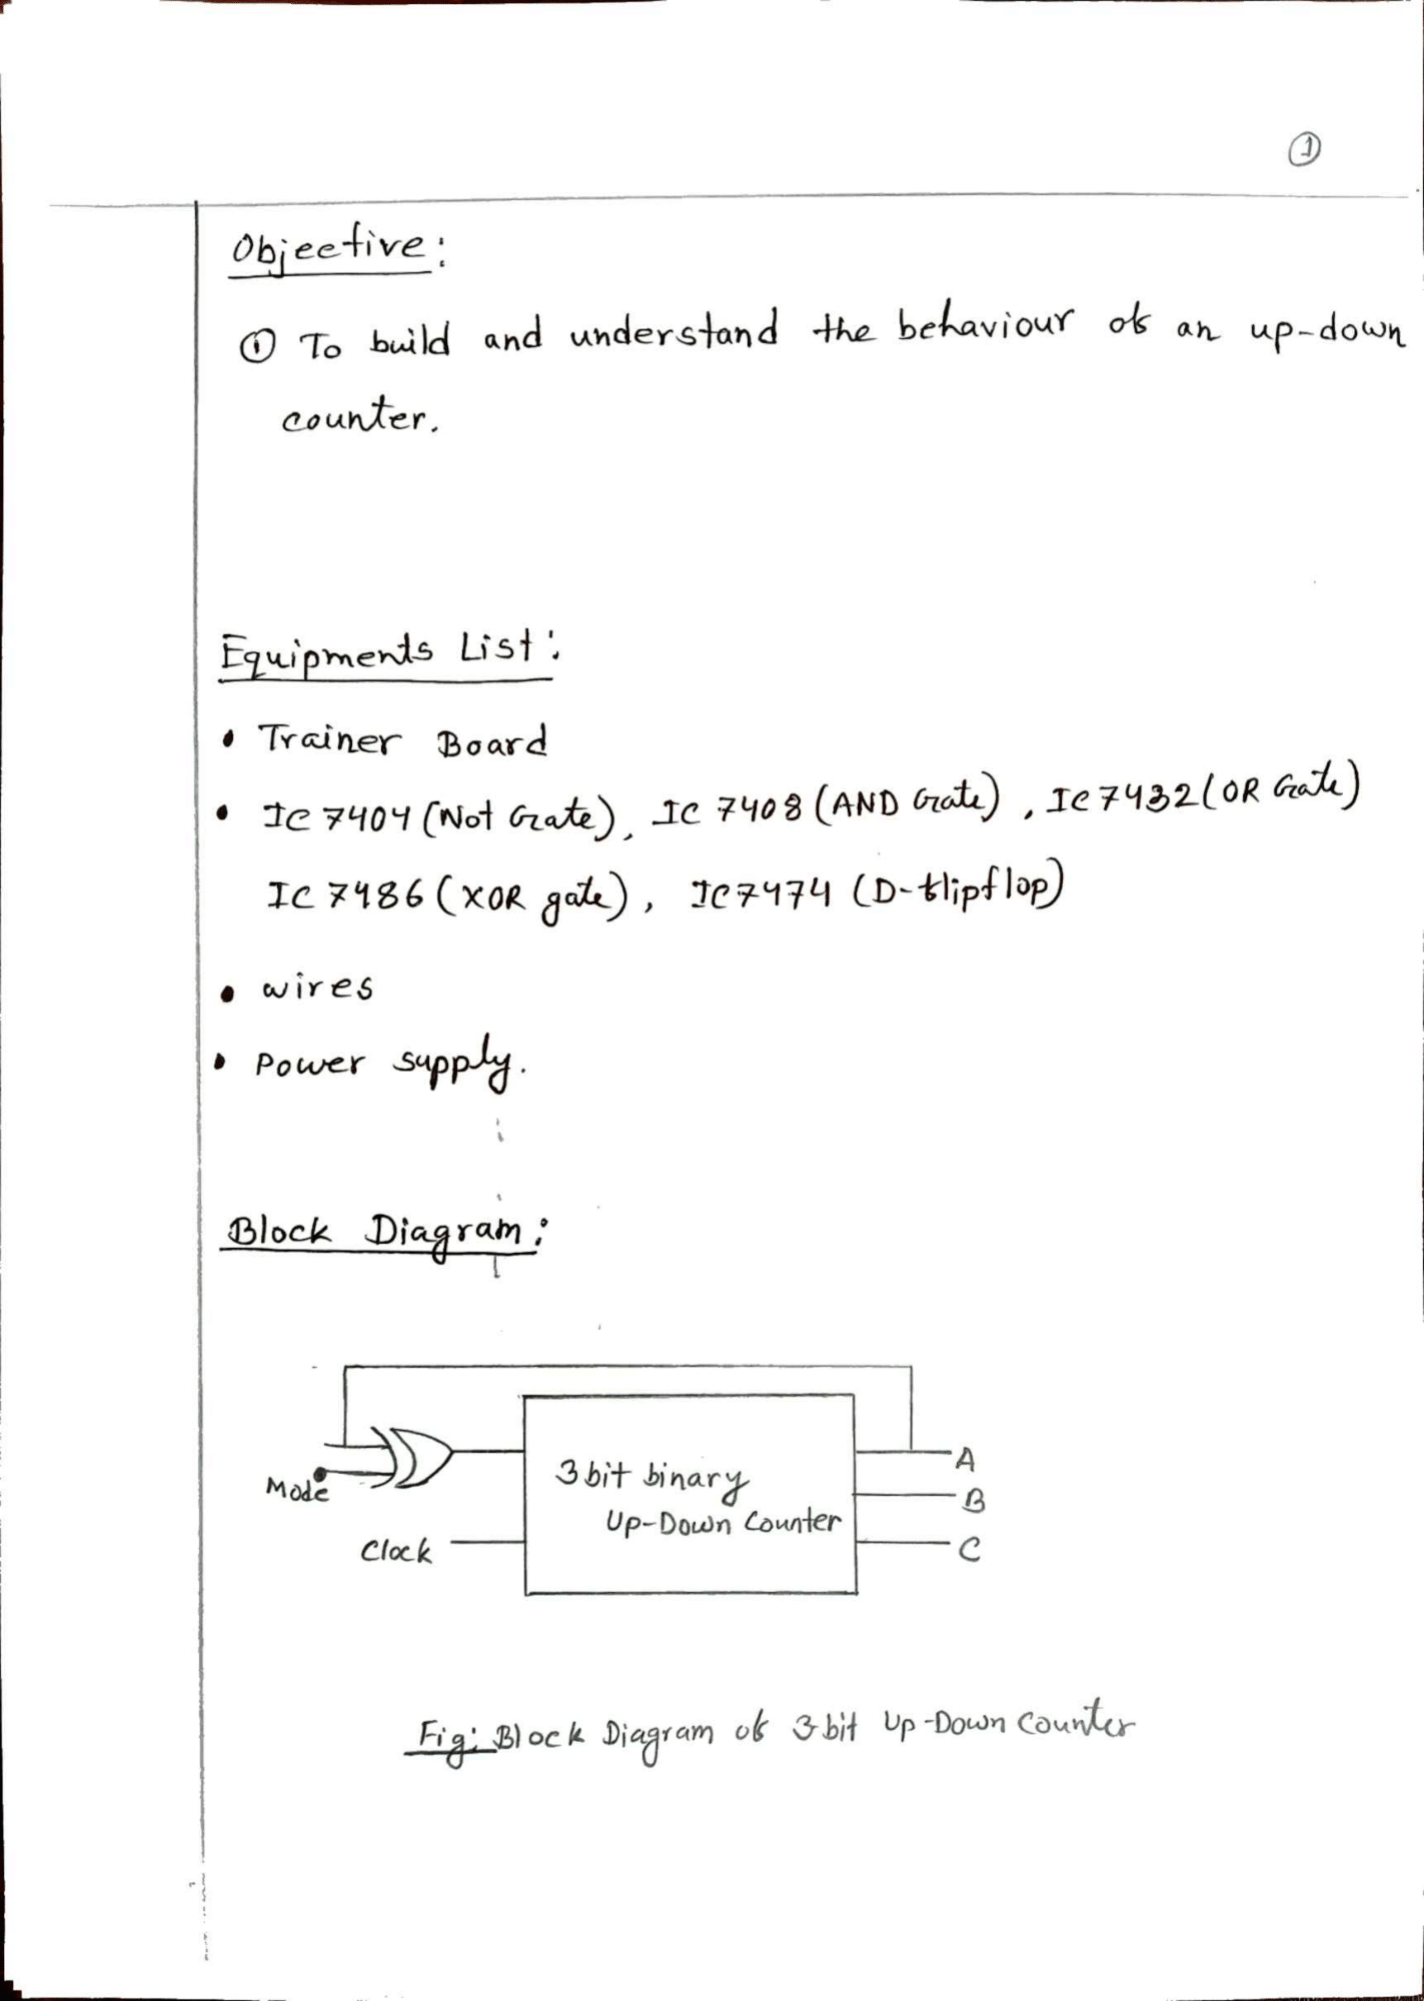 ①
Objective:
① To build and understand the behaviour of an up-down
counter.
Equipments List:
• Trainer Board
• IC 7404 (Not Gate), IC 7408 (AND Gate), IC 7432 (OR Gate)
IC 7486 (XOR gate), IC7474 (D-flipflop)
• wires
• Power supply.
Block Diagram:
A
3 bit binary
Mode
B
Up-Down Counter
Clock
C
Fig: Block Diagram of 3-bit Up-Down Counter